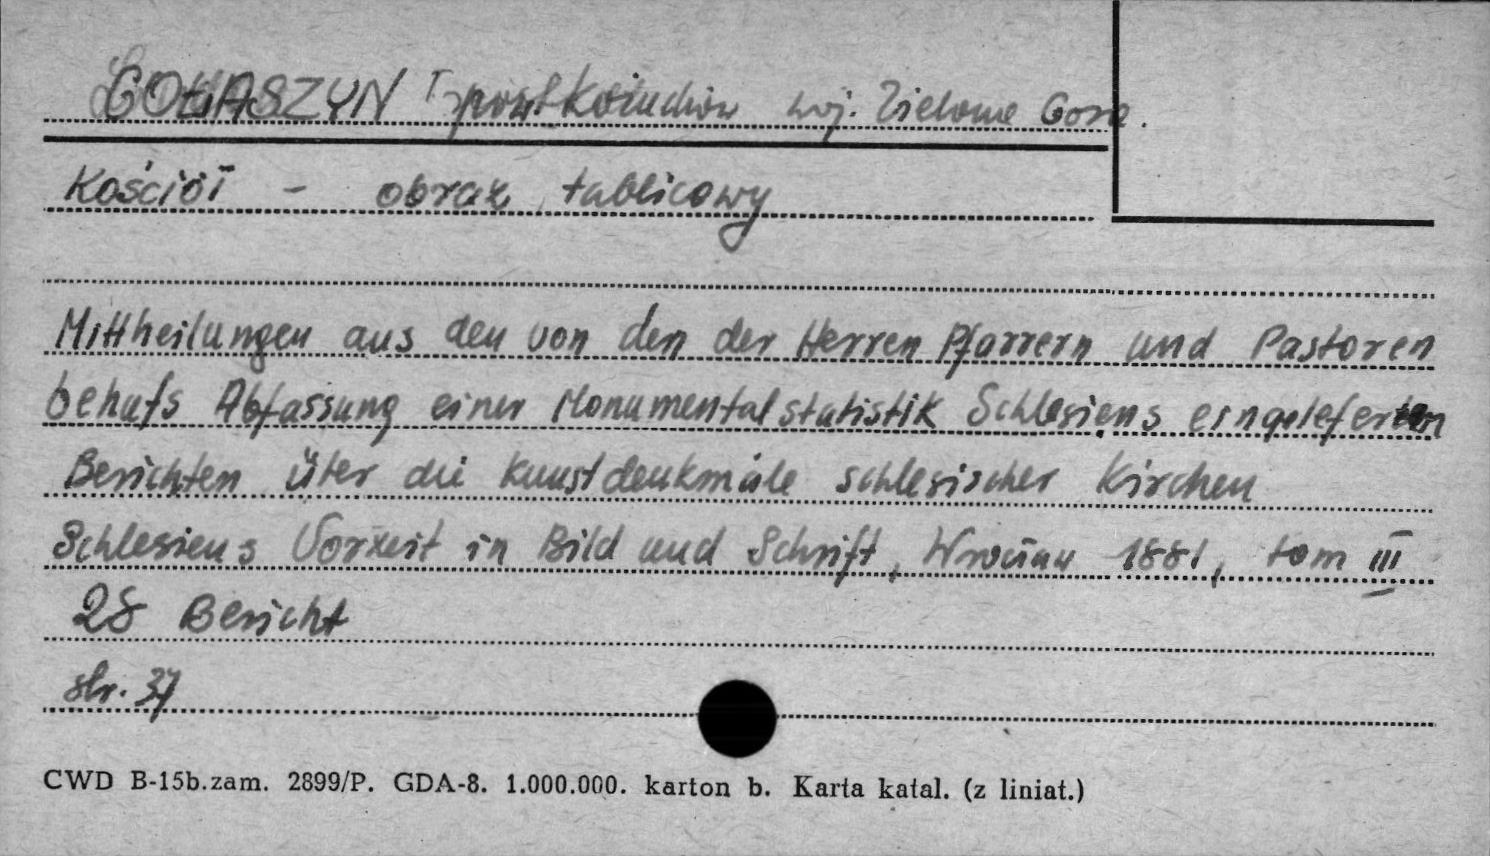 GOŁASZYN pow. Kożuchów woj. Zielona Gora.
Kościół - obraz tablicowy
Mittheilungen aus den von den der Herren Pfarrern und Pastoren
behufs Abfassung einer Monumentalstatistik Schlesiens eingeleferten
Berichten über die Kunstdenkmäle schlesischer Kirchen
Schlesiens Vorzeit in Bild und Schrift, Wrocław 1881, tom III
28 Bericht
str. 37
CWD B-15b.zam. 2899/P. GDA-8. 1.000.000. karton b. Karta katal. (z liniat.)